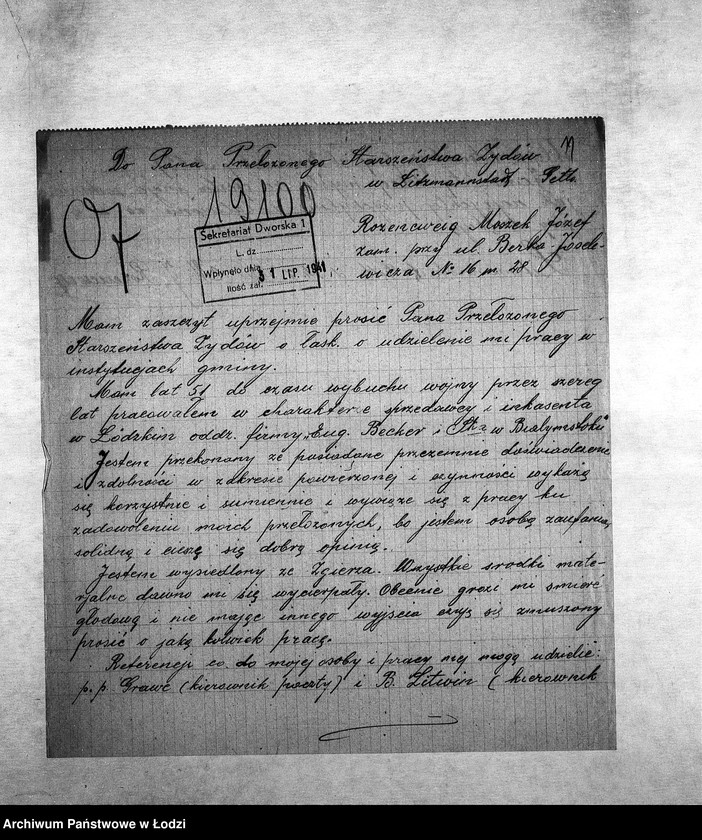 Do Pana Przełożonego Starszeństwa Żydów
w Litzmannstadt Getto
19100
Sekretariat Dworska 1
L. dz.
Wpłynęło dnia 31 LIP. 1941
Ilość zał.
Rozencweig Moszek Józef
zam. przy ul. Berka Josele-
wicza № 16 m 28
Mam zaszczyt uprzejmie prosić Pana Przełożonego
Starszeństwa Żydów o łask. o udzielenie mi pracy w
instytucjach gminy.
Mam lat 51 do czasu wybuchu wojny przez szereg
lat pracowałem w charakterze sprzedawcy i inkasenta
w Łódzkim oddz. firmy „Eug. Becker i S-ka w Białymstoku"
Jestem przekonany że posiadane przezemnie doświadczenie
i zdolności w zakresie powierzonej i czynności wykażą
się korzystnie i sumiennie i wywiąże się z pracy ku
zadowoleniu moich przełożonych, bo jestem osobą zaufania,
solidną i cieszę się dobrą opinią.
Jestem wysiedlony ze Zgierza. Wszystkie srodki mate-
rjalne dawno mi się wyczerpały. Obecnie grozi mi śmierć
głodową i nie mając innego wyjścia czuję się zmuszony
prosić o jaką kolwiek pracę.
Referencji co do mojej osoby i pracy mej mogą udzielić:
p.p. Grawe (kierownik poczty) i B. Litwin (kierownik
Archiwum Państwowe w Łodzi